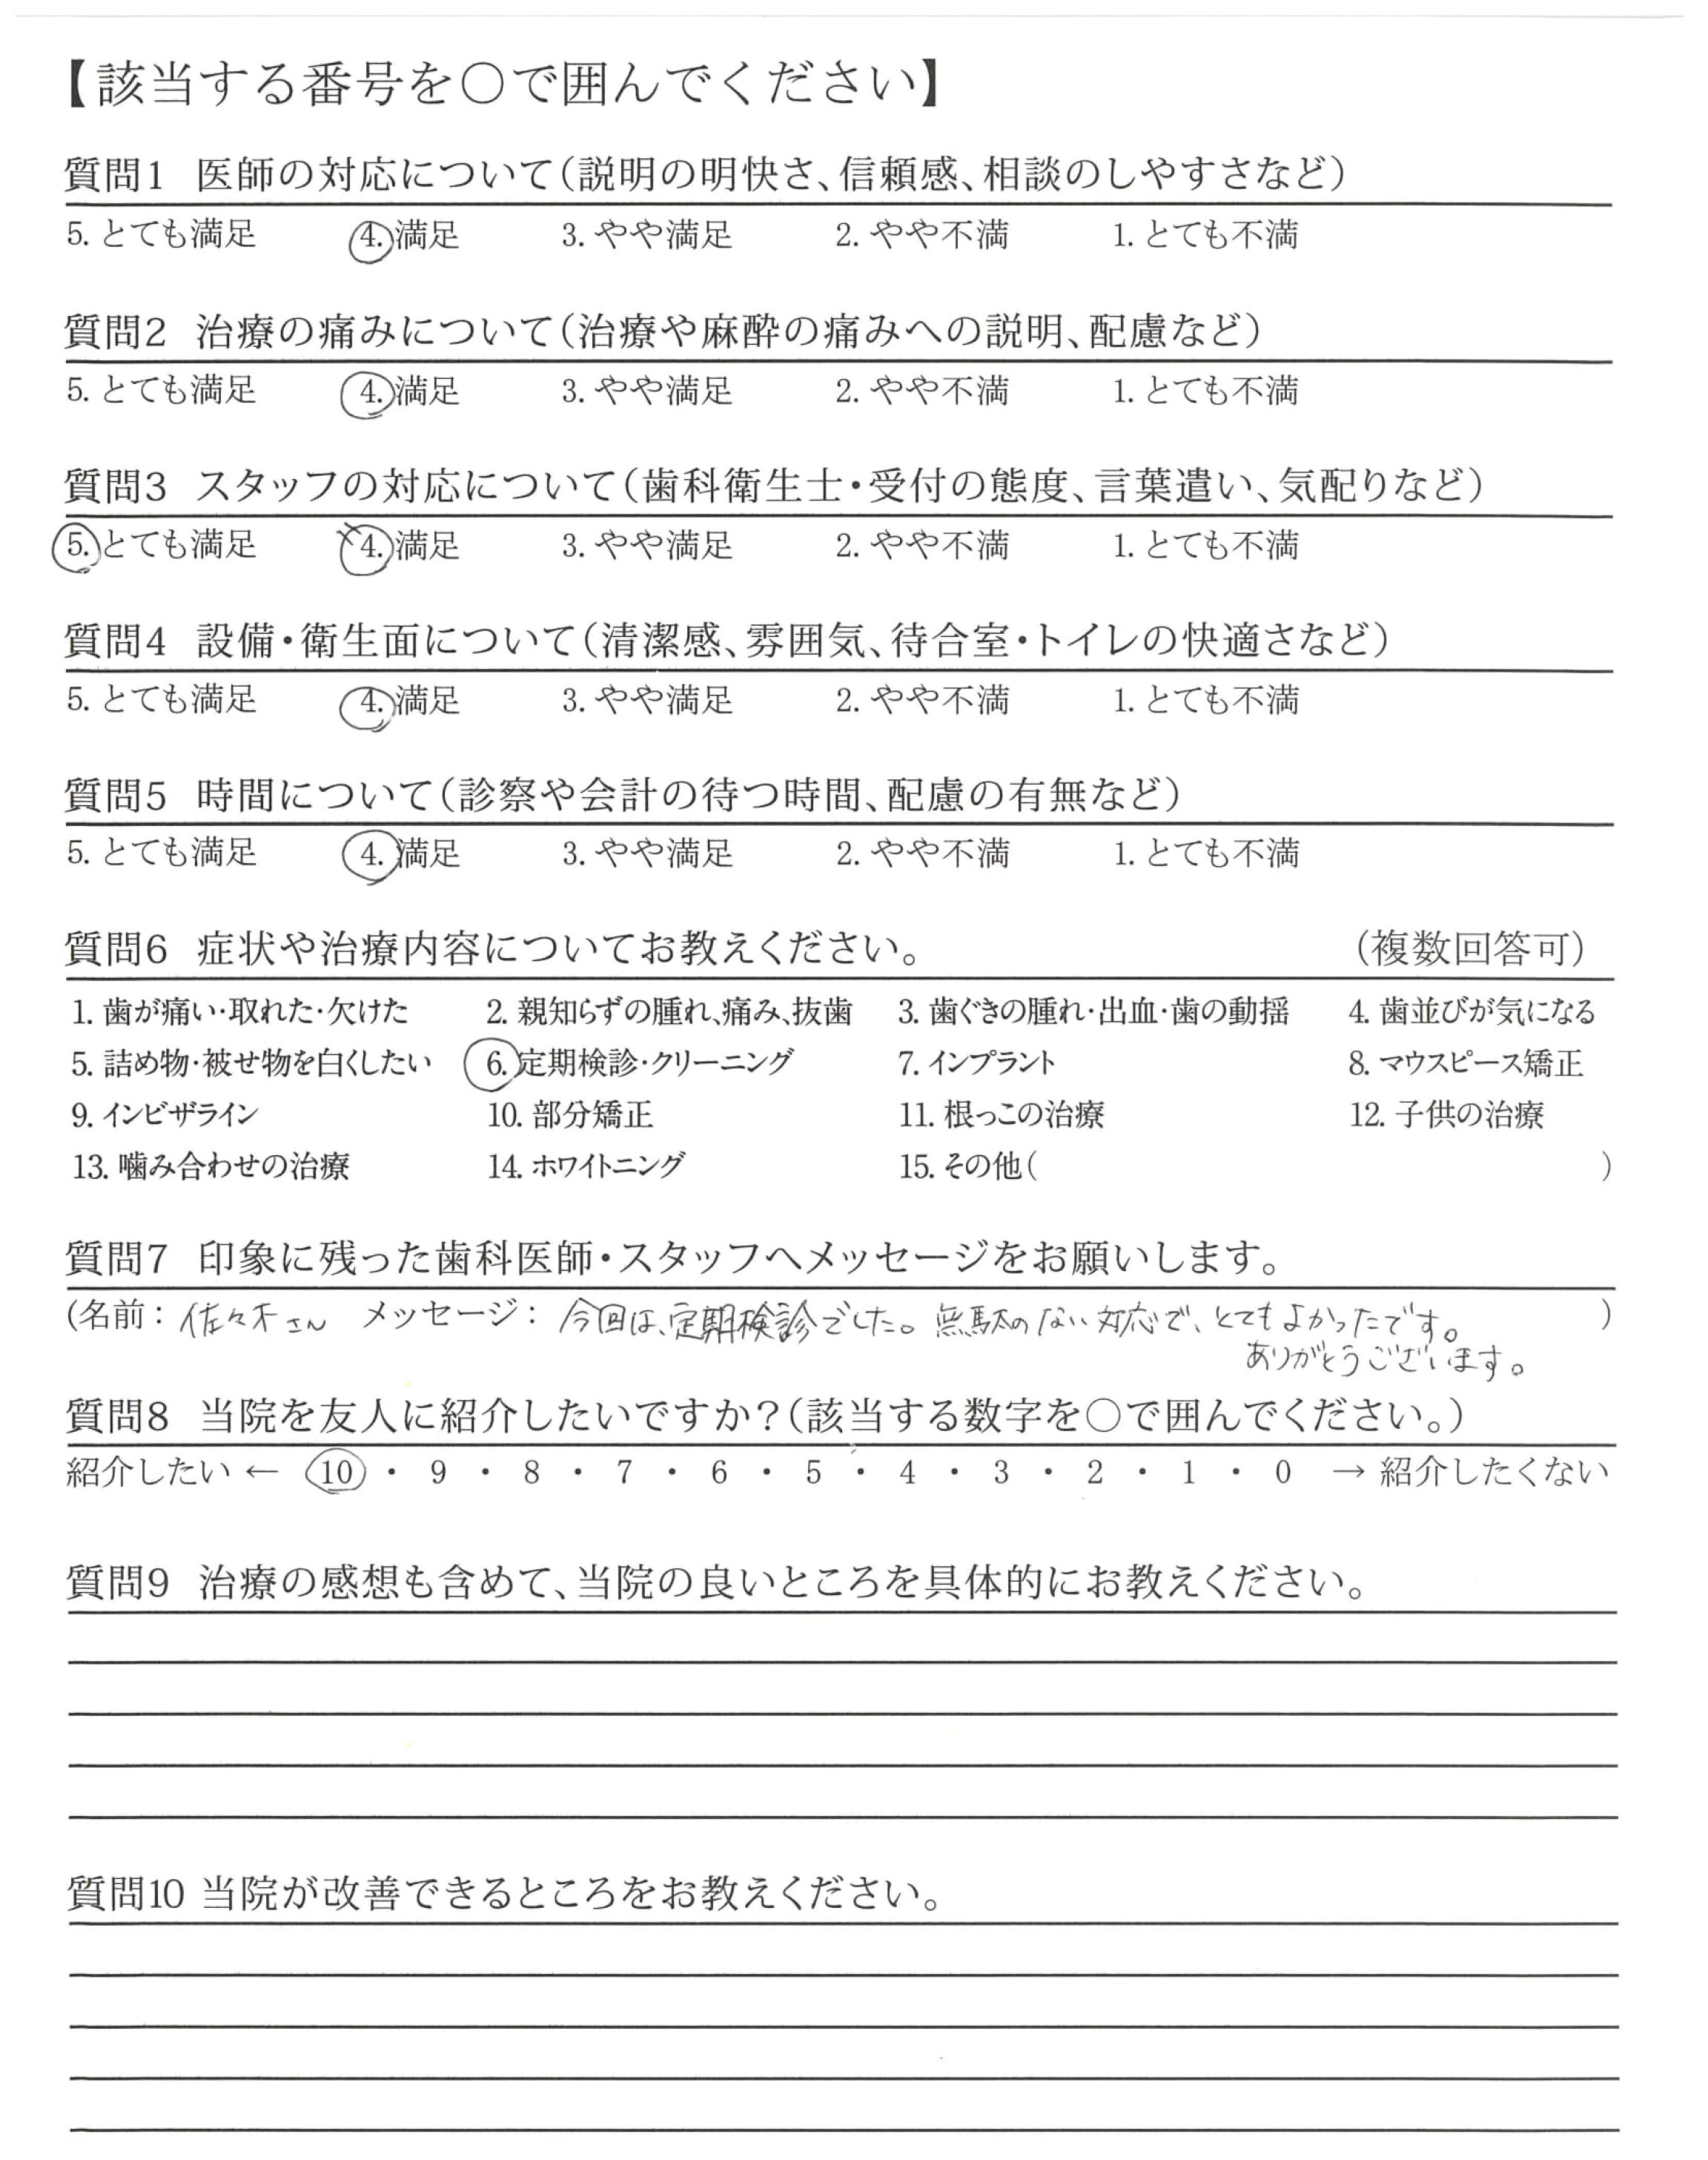 【該当する番号を○で囲んでください】
質問1 医師の対応について(説明の明快さ、信頼感、相談のしやすさなど)
5. とても満足 4. 満足 3. やや満足 2. やや不満 1. とても不満
質問2 治療の痛みについて(治療や麻酔の痛みへの説明、配慮など)
5. とても満足 4. 満足 3. やや満足 2. やや不満 1. とても不満
質問3 スタッフの対応について(歯科衛生士・受付の態度、言葉遣い、気配りなど)
5. とても満足 4. 満足 3. やや満足 2. やや不満 1. とても不満
質問4 設備・衛生面について(清潔感、雰囲気、待合室・トイレの快適さなど)
5. とても満足 4. 満足 3. やや満足 2. やや不満 1. とても不満
質問5 時間について(診察や会計の待つ時間、配慮の有無など)
5. とても満足 4. 満足 3. やや満足 2. やや不満 1. とても不満
質問6 症状や治療内容についてお教えください。 (複数回答可)
1. 歯が痛い・取れた・欠けた 2. 親知らずの腫れ、痛み、抜歯 3. 歯ぐきの腫れ・出血・歯の動揺 4. 歯並びが気になる
5. 詰め物・被せ物を白くしたい 6. 定期検診・クリーニング 7. インプラント 8. マウスピース矯正
9. インビザライン 10. 部分矯正 11. 根っこの治療 12. 子供の治療
13. 噛み合わせの治療 14. ホワイトニング 15. その他( )
質問7 印象に残った歯科医師・スタッフへメッセージをお願いします。
(名前: 佐々木さん メッセージ: 今回は、定期検診でした。無駄のない対応で、とてもよかったです。 )
ありがとうございます。
質問8 当院を友人に紹介したいですか?(該当する数字を○で囲んでください。)
紹介したい ← 10 ・ 9 ・ 8 ・ 7 ・ 6 ・ 5 ・ 4 ・ 3 ・ 2 ・ 1 ・ 0 → 紹介したくない
質問9 治療の感想も含めて、当院の良いところを具体的にお教えください。
質問10 当院が改善できるところをお教えください。